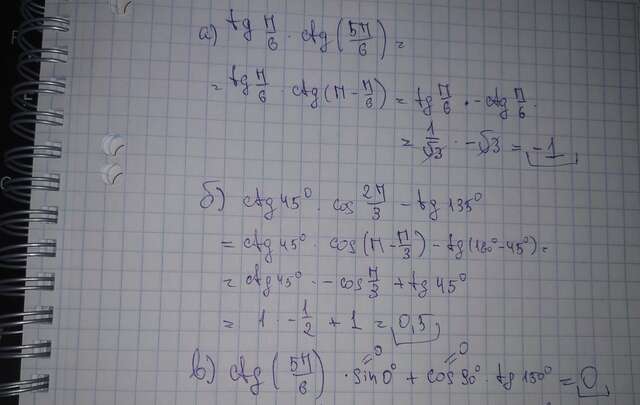 а) tg π/6 · ctg(5π/6) =
= tg π/6 · ctg(π - π/6) = tg π/6 · -ctg π/6 .
= 1/√3 · -√3 = -1
б) ctg 45° · cos 2π/3 - tg 135°
= ctg 45° · cos(π - π/3) - tg(180° - 45°) =
= ctg 45° · -cos π/3 + tg 45°
= 1 · -1/2 + 1 = 0,5
в) ctg(5π/6) · sin 0° = 0 + cos 90° = 0 · tg 150° = 0